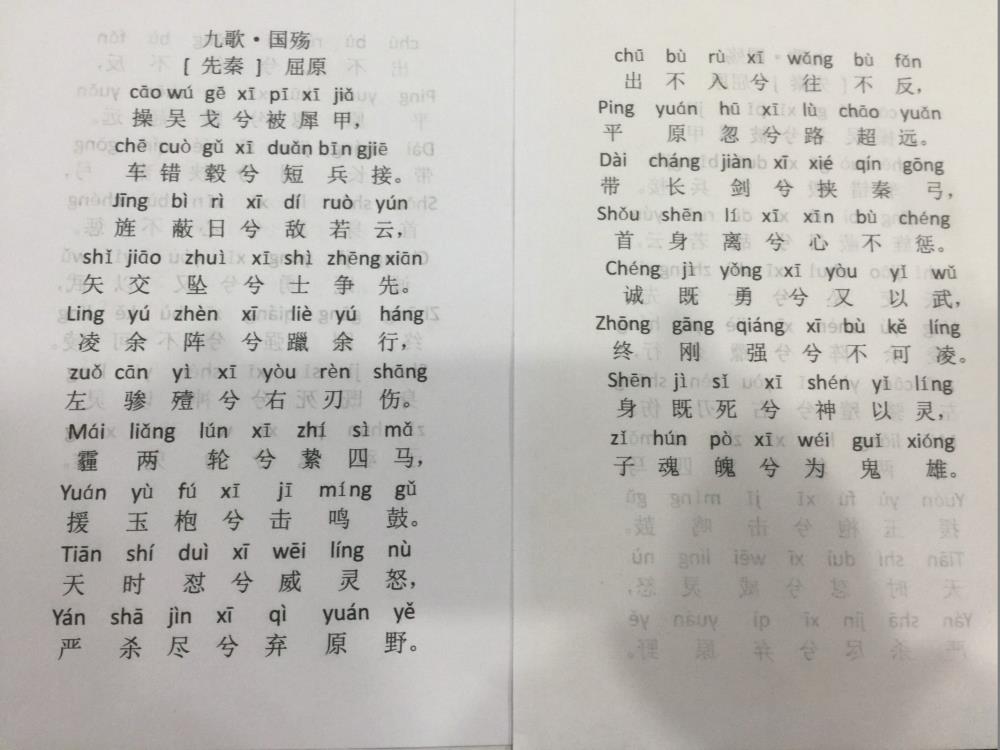 九歌·国殇
[ 先秦 ] 屈原
cāo wú gē xī pī xī jiǎ
操 吴 戈 兮 被 犀 甲，
chē cuò gǔ xī duǎn bīng jiē
车 错 毂 兮 短 兵 接。
Jīng bì rì xī dí ruò yún
旌 蔽 日 兮 敌 若 云，
shǐ jiāo zhuì xī shì zhēng xiān
矢 交 坠 兮 士 争 先。
Líng yú zhèn xī liè yú háng
凌 余 阵 兮 躐 余 行，
zuǒ cān yì xī yòu rèn shāng
左 骖 殪 兮 右 刃 伤。
Mái liǎng lún xī zhí sì mǎ
霾 两 轮 兮 絷 四 马，
Yuán yù fú xī jī míng gǔ
援 玉 枹 兮 击 鸣 鼓。
Tiān shí duì xī wēi líng nù
天 时 怼 兮 威 灵 怒，
Yán shā jìn xī qì yuán yě
严 杀 尽 兮 弃 原 野。
chū bù rù xī wǎng bù fǎn
出 不 入 兮 往 不 反，
Píng yuán hū xī lù chāo yuǎn
平 原 忽 兮 路 超 远。
Dài cháng jiàn xī xié qín gōng
带 长 剑 兮 挟 秦 弓，
Shǒu shēn lí xī xīn bù chéng
首 身 离 兮 心 不 惩。
Chéng jì yǒng xī yòu yǐ wǔ
诚 既 勇 兮 又 以 武，
Zhōng gāng qiáng xī bù kě líng
终 刚 强 兮 不 可 凌。
Shēn jì sǐ xī shén yǐ líng
身 既 死 兮 神 以 灵，
zǐ hún pò xī wéi guǐ xióng
子 魂 魄 兮 为 鬼 雄。